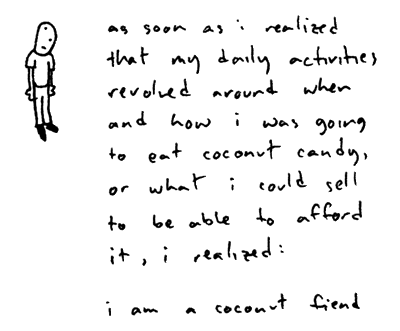 as soon as i realized
that my daily activities
revolved around when
and how i was going
to eat coconut candy,
or what i could sell
to be able to afford
it, i realized:
i am a coconut fiend